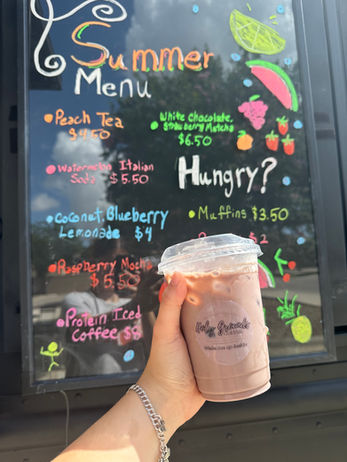 Summer
Menu
Peach Tea
$4.50
Watermelon Italian
Soda $5.50
Coconut Blueberry
Lemonade $4
Raspberry Mocha
$5.50
Protein Iced
Coffee $8
White Chocolate
Strawberry Matcha
$6.50
Hungry?
Muffins $3.50
$2
Holy Grounds